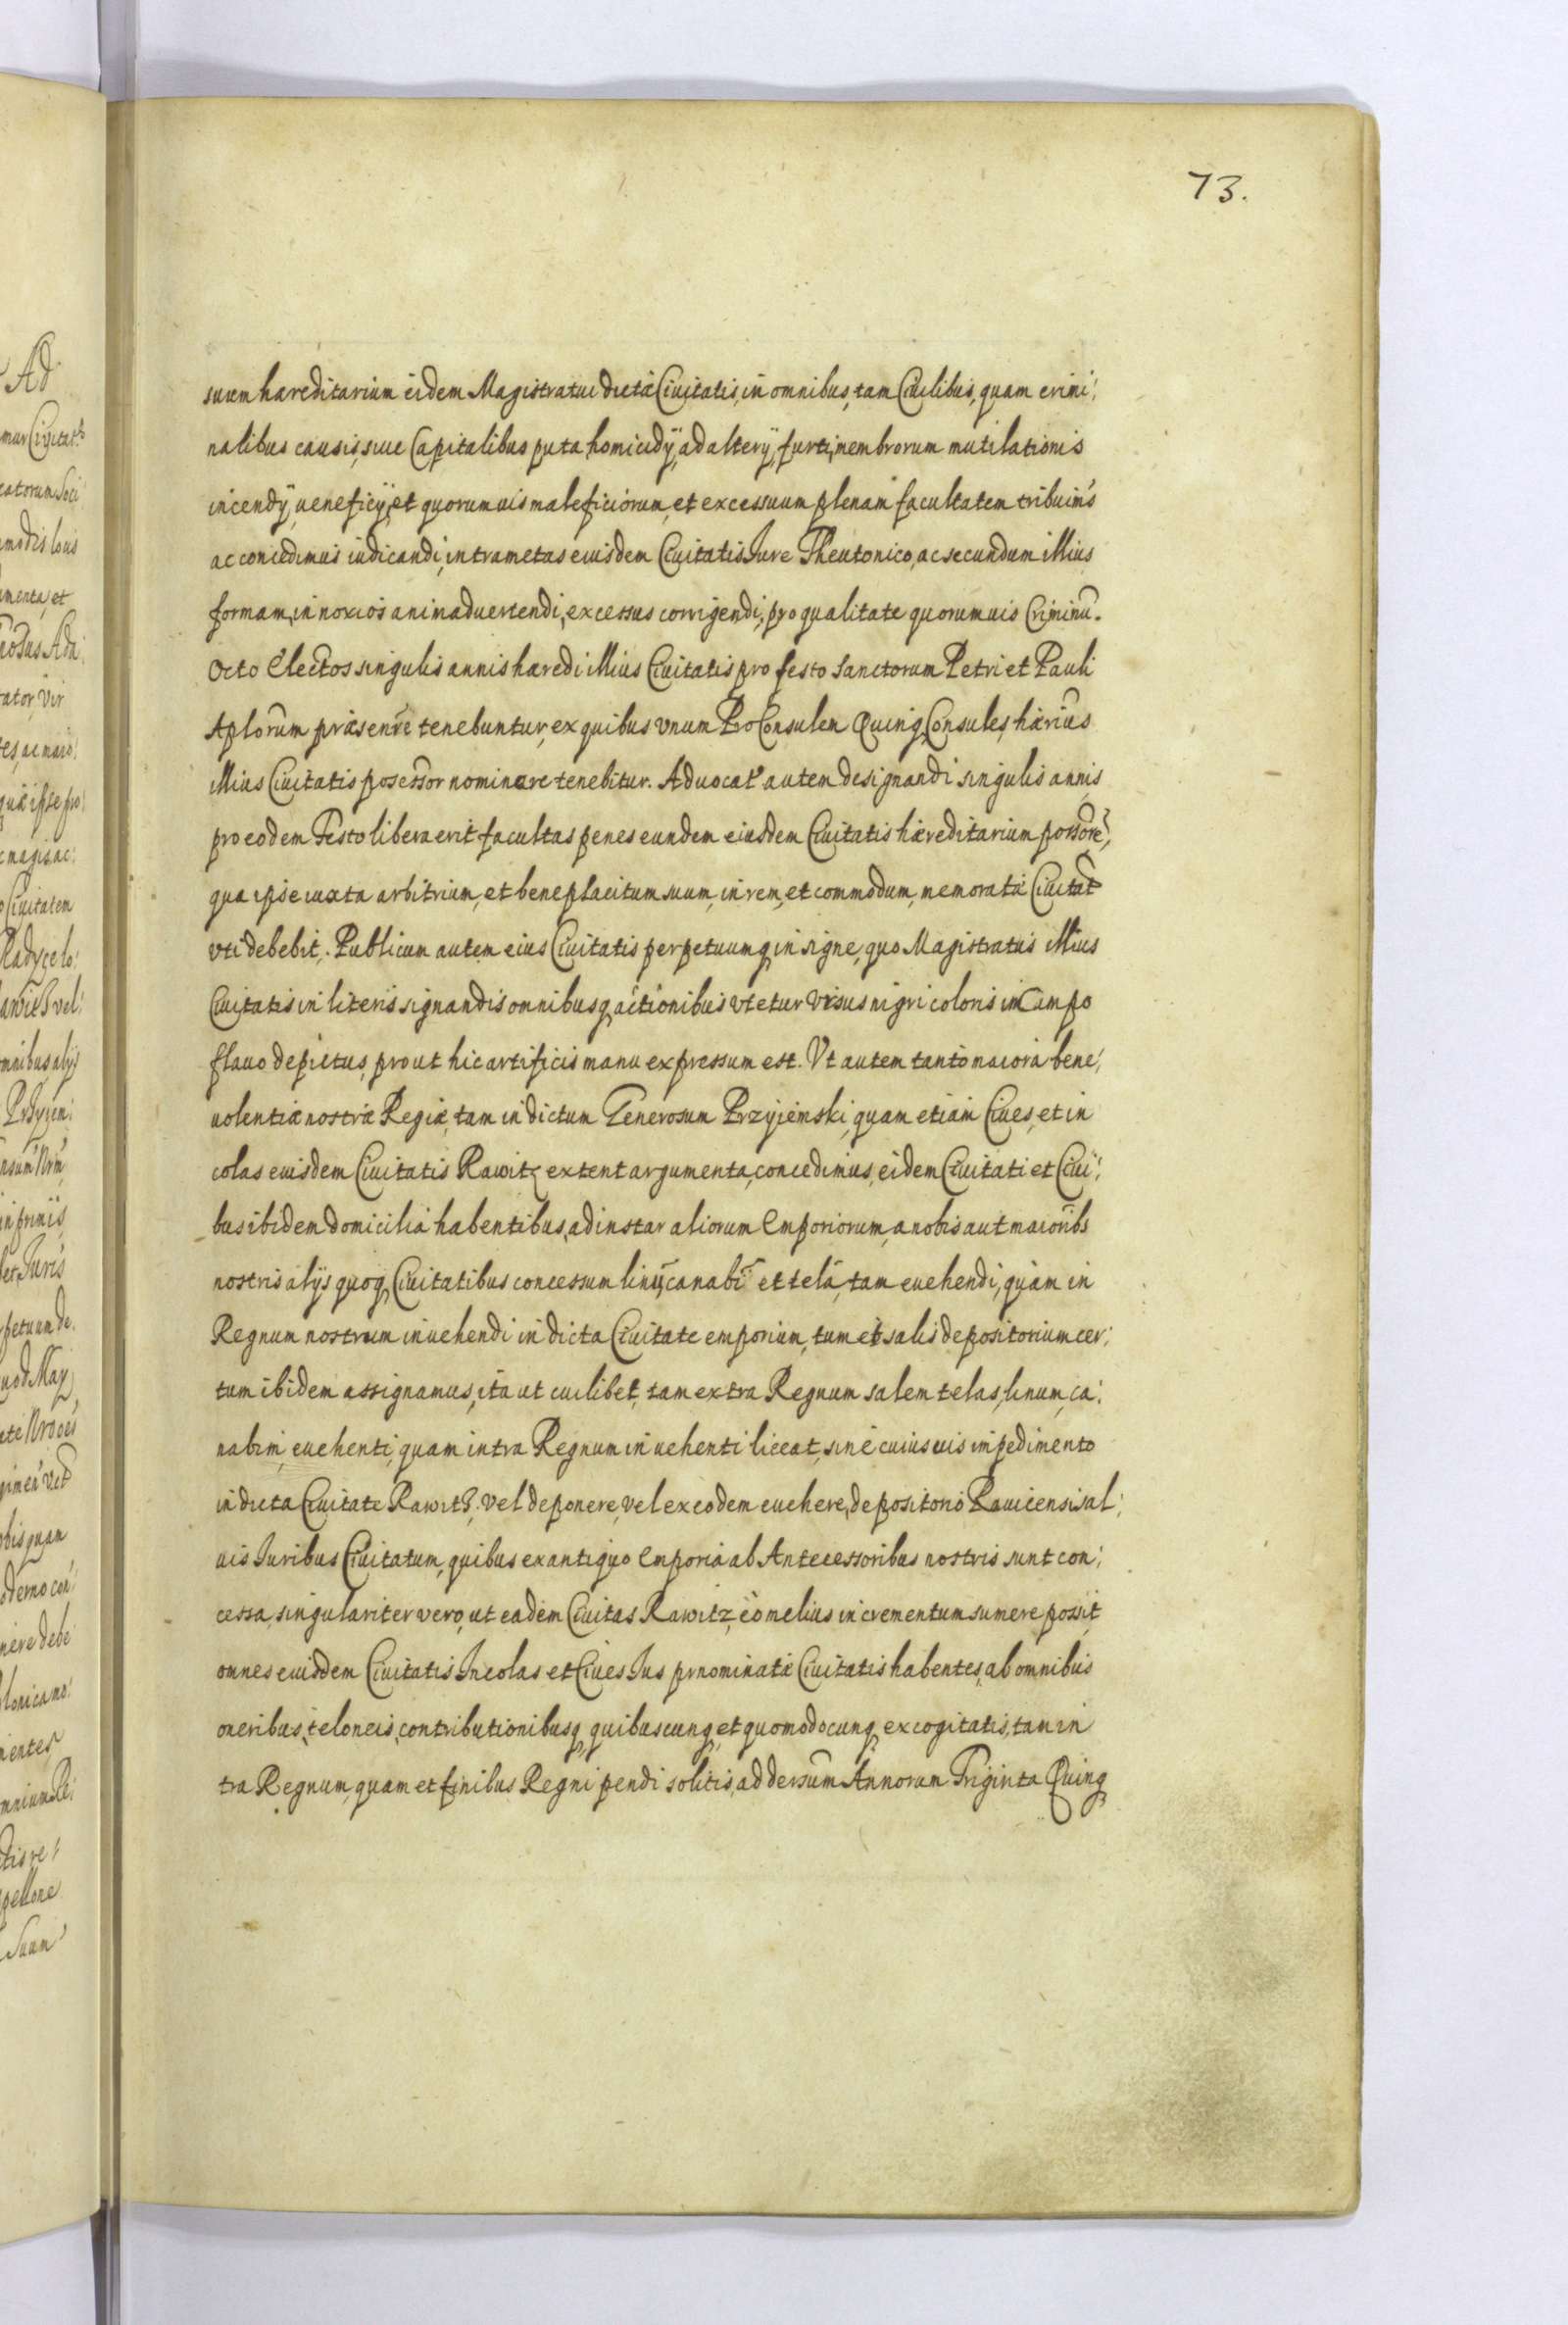 73.
suum hæreditarium eidem Magistratui dictæ Ciuitatis, in omnibus, tam Ciuilibus, quam crimi:
nalibus causis, siue Capitalibus puta homicidÿ, adalterÿ, furti, membrorum mutilationis
incendÿ, ueneficÿ, et quorumuis maleficiorum, et excessuum plenam facultatem tribuim's
ac concedimus iudicandi, intra metas eiusdem Ciuitatis Jure Theutonico, ac secundum illius
formam, in noxios animaduertendi, excessus corrigendi, pro qualitate quorumuis Criminū.
Octo Electos singulis annis hæredi illius Ciuitatis pro festo Sanctorum Petri et Pauli
Aplorum præsenre tenebuntur, ex quibus vnum ProConsulem Quinq Consules, hærius
illius Ciuitatis posessor nominare tenebitur. Aduocat' autem designandi singulis annis
pro eodem Festo libera erit facultas penes eundem eiusdem Ciuitatis hæreditarium possore,
qua ipse iuxta arbitrium, et beneplacitum suum, in rem, et commodum, memoratæ Ciuitat
vti debebit. Publicum autem eius Ciuitatis perpetuumq insigne, quo Magistratus illius
Ciuitatis in literis signandis omnibusq actionibus vtetur Vrsus nigri coloris in Campo
flauo depictus, prout hic artificis manu expressum est. Vt autem tanto maiora bene:
uolentiæ nostræ Regiæ, tam in dictum Generosum Przyiemski, quam etiam Ciues, et in
colas eiusdem Ciuitatis Rawitz extent argumenta, concedimus, eidem Ciuitati et Ciui:
bus ibidem domicilia habentibus, ad instar aliorum Emporiorum, a nobis aut maioribs
nostris alÿs quoq Ciuitatibus concessum linū, canabī et telā, tam euehendi, quàm in
Regnum nostrum inuehendi in dicta Ciuitate emporium, tum et salis depositorium cer:
tum ibidem assignamus, ita ut cuilibet, tam extra Regnum salem telas, linum, ca:
nabim, euehenti, quam intra Regnum inuehenti liceat, sine cuiusuis impedimento
in dicta Ciuitate Rawitz. vel deponere, vel ex eodem euehere, depositorio Rauicensi sal:
uis Juribus Ciuitatum, quibus ex antiquo Emporia ab Antecessoribus nostris sunt con:
cessa, singulariter vero, ut eadem Ciuitas Rawitz, eò melius incrementum sumere possit
omnes eiusdem Ciuitatis Incolas et Ciues Jus prnominatæ Ciuitatis habentes, ab omnibus
oneribus, teloneis, contributionibusq quibuscunq, et quomodocunq excogitatis, tam in
tra Regnum, quam et finibus Regni pendi solitis, ad dersum Annorum Triginta Quinq